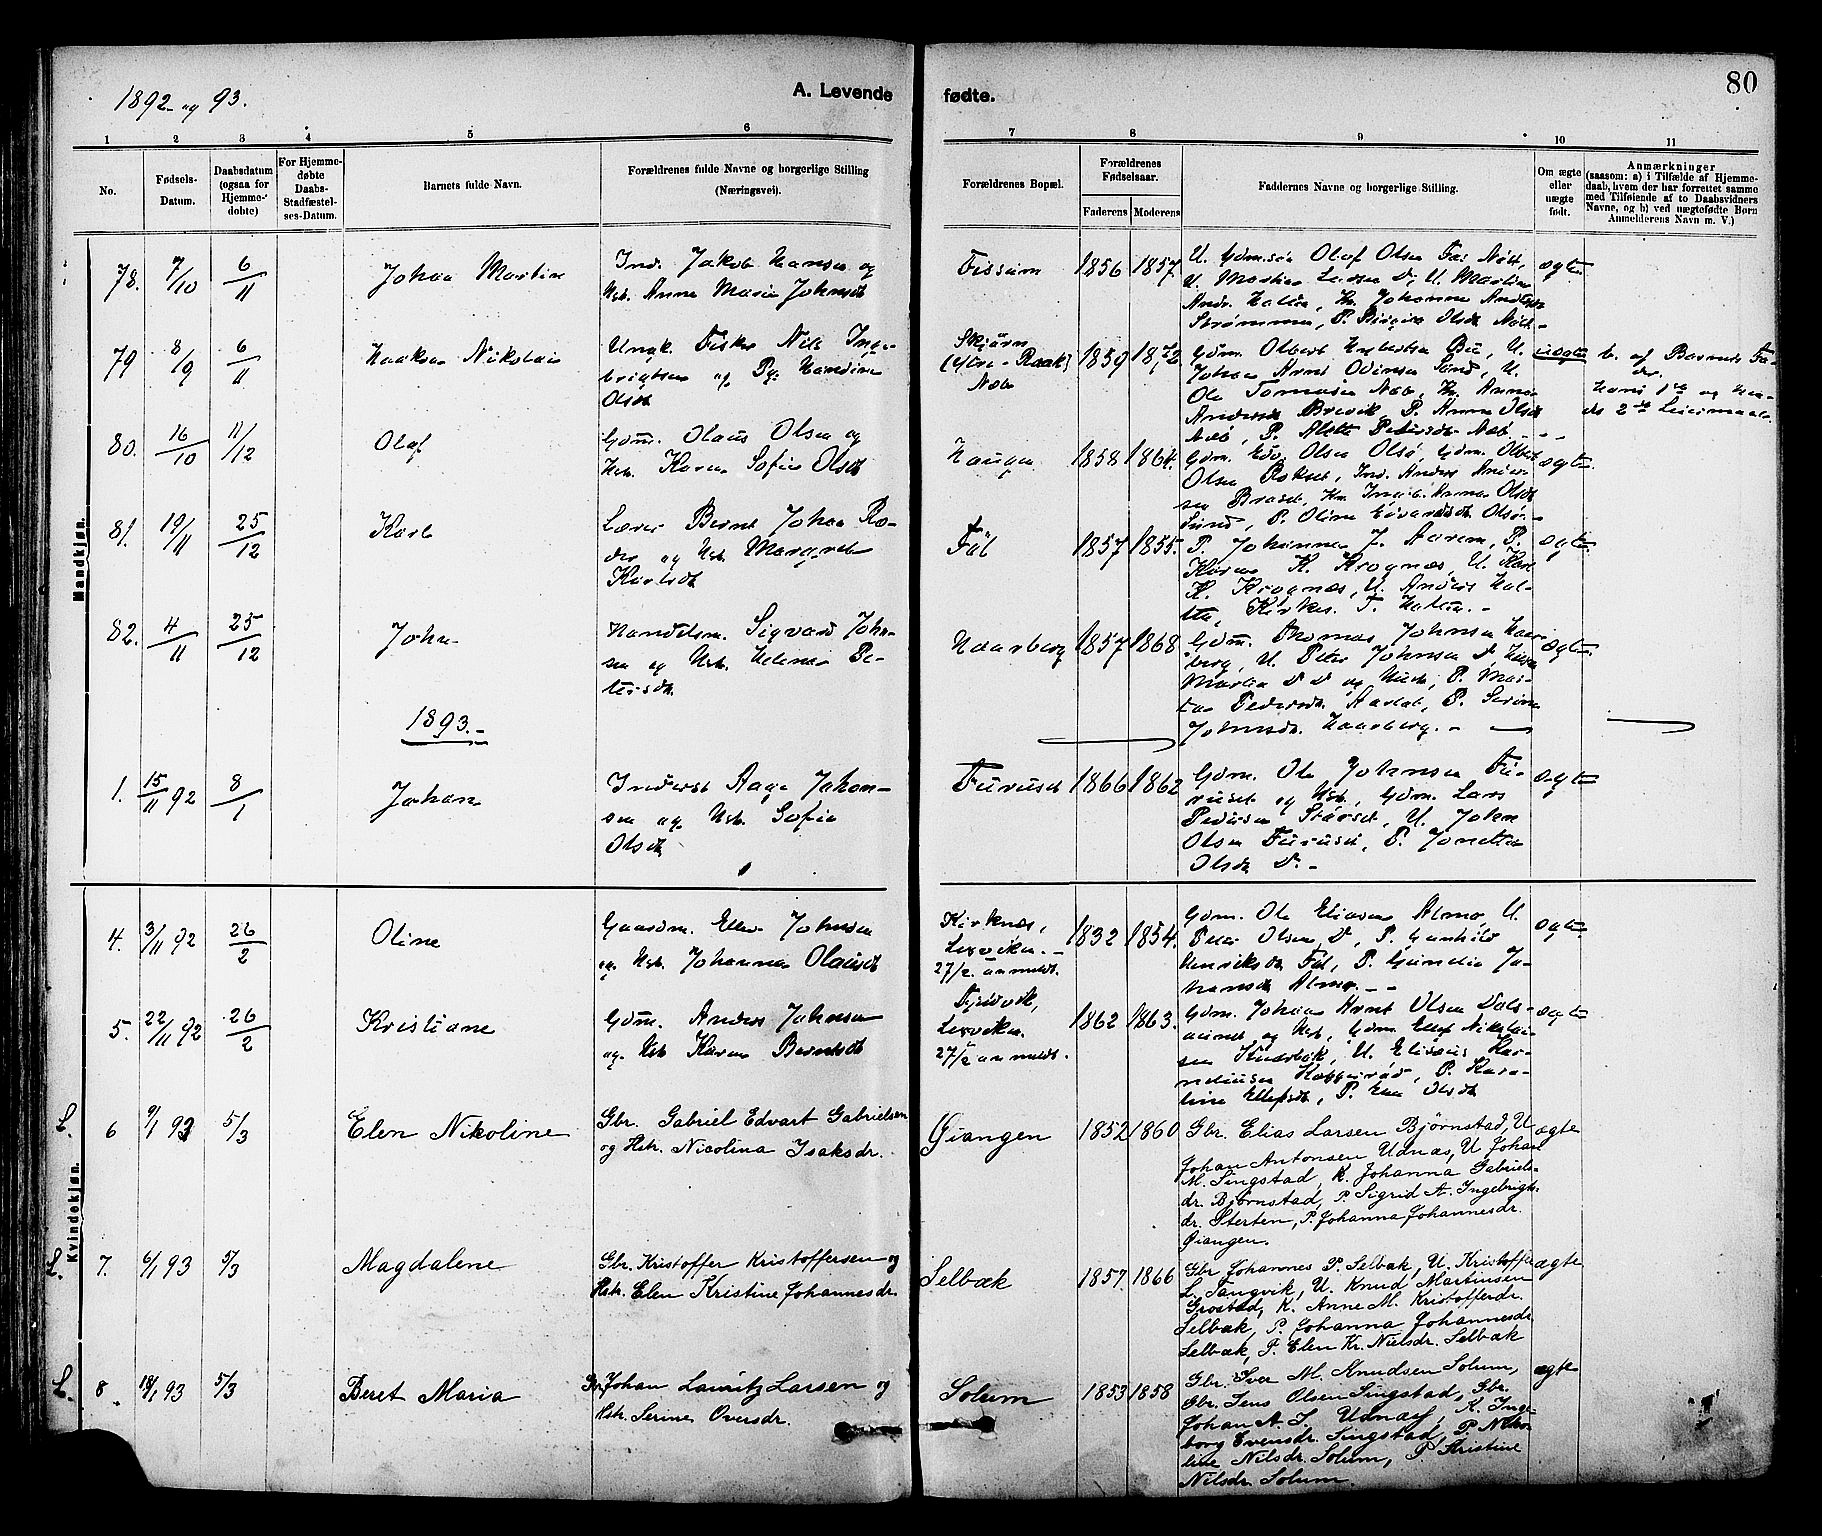 1892 og 93.
A. Levende
fødte.
80
1 2 3 4 5 6 7 8 9 10 11
No.
Fødsels-Datum.
Daabsdatum (ogsaa for Hjemme-døbte)
For Hjemme-døbte Daabs-Stadfæstel-ses-Datum.
Barnets fulde Navn.
Forældrenes fulde Navne og borgerlige Stilling (Næringsvei).
Forældrenes Bopæl.
Forældrenes Fødselsaar.
Faderens Moderens
Faddernes Navne og borgerlige Stilling.
Om ægte eller uægte født.
Anmærkninger
(saasom: a) i Tilfælde af Hjemme-
daab, hvem der har forrettet samme
med Tilføiende af to Daabsvidners
Navne, og b) ved uægtefødte Børn
Anmelderens Navn m. V.)
Mandkjøn.
78. 7/10 6/11 Johan Martin
Ind. Jakob Hansen og
Hst. Anne Marie Johnsdt
Fissum 1856 1857
U. Gdmsøn Olof Olsen
U. Larsen D, U. Martin
Andr. Johanne
Olsdt
ægte
79 8/9 6/11 Haakon Nikolai
Ungk. Fisker Nils Inge-
brigtsen og Pg. Handine
Olsdt
Skjørn
(Ytre-Raak)
1859 1872
Gdm. Olbert, U.
Johan Arnt Odinsen Sund, U.
Ole Tomasen, Kr. Anna
Andersdt Brevik, P. Anna Olsdt
P. Pedersdt
uægte
b. af Barnets Fa-
der.
Hans 1ste og Hen-
des 2det Leiermaal.
80. 16/10 11/12 Olaf
Gdm. Olaus Olsen og
Hst. Karen Sofie Olsdt
Haugen 1858 1864.
Gdm. Edv. Olsen Olsø, Gdm. Olbert
Olsen Rokset, Ind. Anders Ander-
sen Braset, Olsdt
Sund, P. Oline Edvardsdt Olsø.-
ægte.
81. 19/11 25/12 Karl
Lærer Bernt Johan Rø-
der og Hst. Margrete
Karlsdt
Føl 1857 1855.
P. Johanna J. Aarem, P.
Karen K. Krognæs, U. Karl
K. Krognæs, U. Anders Hal-
Kirkes. T. Halten.-
ægte.
82. 4/11 25/12 John
Handelsm. Sigvard John-
sen og Hst. Helene Pe-
tersdt
Haarberg 1857 1868
Gdm. Thomas Johnsen Haar-
berg, U. Peter Johnsen D,
Martin D D og Hust, P. Mar-
ta Pedersdt, P. Serine
Johnsdt. Haarberg.-
ægte.
1893.-
1. 15/11 92 8/1 Johan
Inderst Aage Johan-
sen og Hst. Sofie
Olsdt
Furuset 1866 1862
Gdm. Ole Johnsen Fu-
ruset og Hst, Gdm. Lars
Pedersen Størset, U. John
Olsen Furuset, P. Jonetta
Olsdt D.-
ægte
Kvindekjøn.
4. 3/11 92 26/2 Oline
Gaardm. Ellev Johnsen
og Hst. Johanna Olausdt
Kirknæs,
Lexviken.-
27/2 anmeldt.
1832 1854.
Gdm. Ole Eliasen Almo, U.
Peter Olsen D, P. Gunhild
Henriksdt Føl, P. Gurudie Jo-
hansdt Almo.--
ægte.
5. 22/11 92 26/2 Kristiane
Gdm. Anders Johnsen
og Hst Karen Berntsdt
Lexviken.
27/2 anmeldt.
1862 1863.
Gdm. Johan Arnt Olsen Dals-
aunet og Hst, Gdm. Ellef Nikolai-
sen, U. Eliseus Kor-
neliusen, P. Karo-
line Ellefsdt, P. Olsdt
ægte
L. 6 9/1 93 5/3 Elen Nikoline
Gbr. Gabriel Edvart Gabrielsen
og Hstr. Nicolina Isaksdr.
Gjangen 1852 1860
Gbr. Elias Larsen Bjørnstad, U
Johan Antonsen Udnæs, U Johan
M. Singstad, K. Johanna Gabriels-
dr. Bjørnstad, P. Sigrid A. Ingebrigts-
dr. Sterten, P. Johanna Johannesdr.
Gjangen.
ægte
L. 7. 6/1 93 5/3 Magdalene
Gbr. Kristoffer Kristoffersen og
Hstr. Elen Kristine Johannesdr.
Selbæk 1857. 1866
Gbr Johannes P. Selbæk, U. Kristoffer
L. Tangvik, U. Knud Martinsen
Grostad, K. Anne M. Kristofferdr.
Selbæk, P. Johanna Johannesdr.
Selbæk, P. Elen Kr. Nielsdr. Selbæk
ægte
L. 8. 18/1 93 5/3 Beret Maria
Gbr. Johan Lauritz Larsen og
Hstr. Serine Oversdr.
Solum 1853 1858
Gbr. Iver M. Knudsen Solum,
Gbr. Jens Olsen Singstad, Gbr.
Johan A. J. Udnæs, K. Inge-
borg Evensdr. Singstad, P. Niko-
line Nilsdr. Solum, P. Kristine
Nilsdr. Solum.
ægte